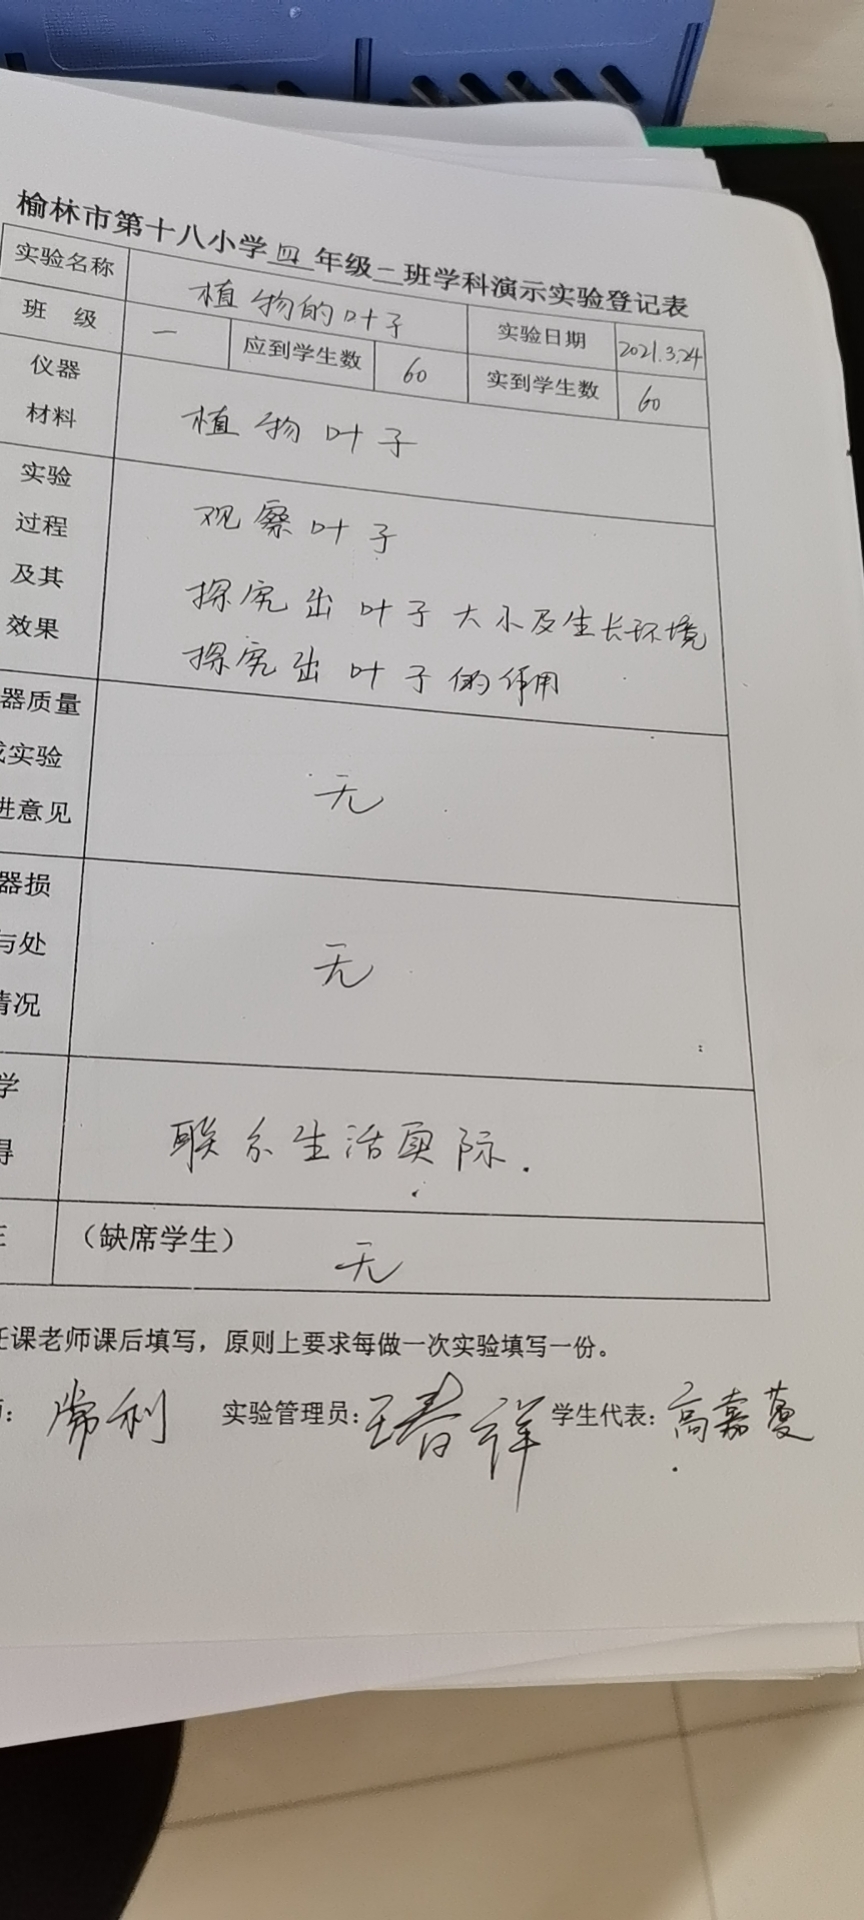 榆林市第十八小学四年级二班学科演示实验登记表
实验名称 植物的叶子 实验日期 2021.3.24
班 级 一 应到学生数 60 实到学生数 60
仪器
材料
植物叶子
实验
过程
及其
效果
观察叶子
探究出叶子大小及生长环境
探究出叶子的作用
器质量
实验
进意见
无
器损
与处
情况
无
学
得
联系生活实际.
（缺席学生） 无
任课老师课后填写，原则上要求每做一次实验填写一份。
: 常利 实验管理员: 王春祥 学生代表: 高嘉蔓